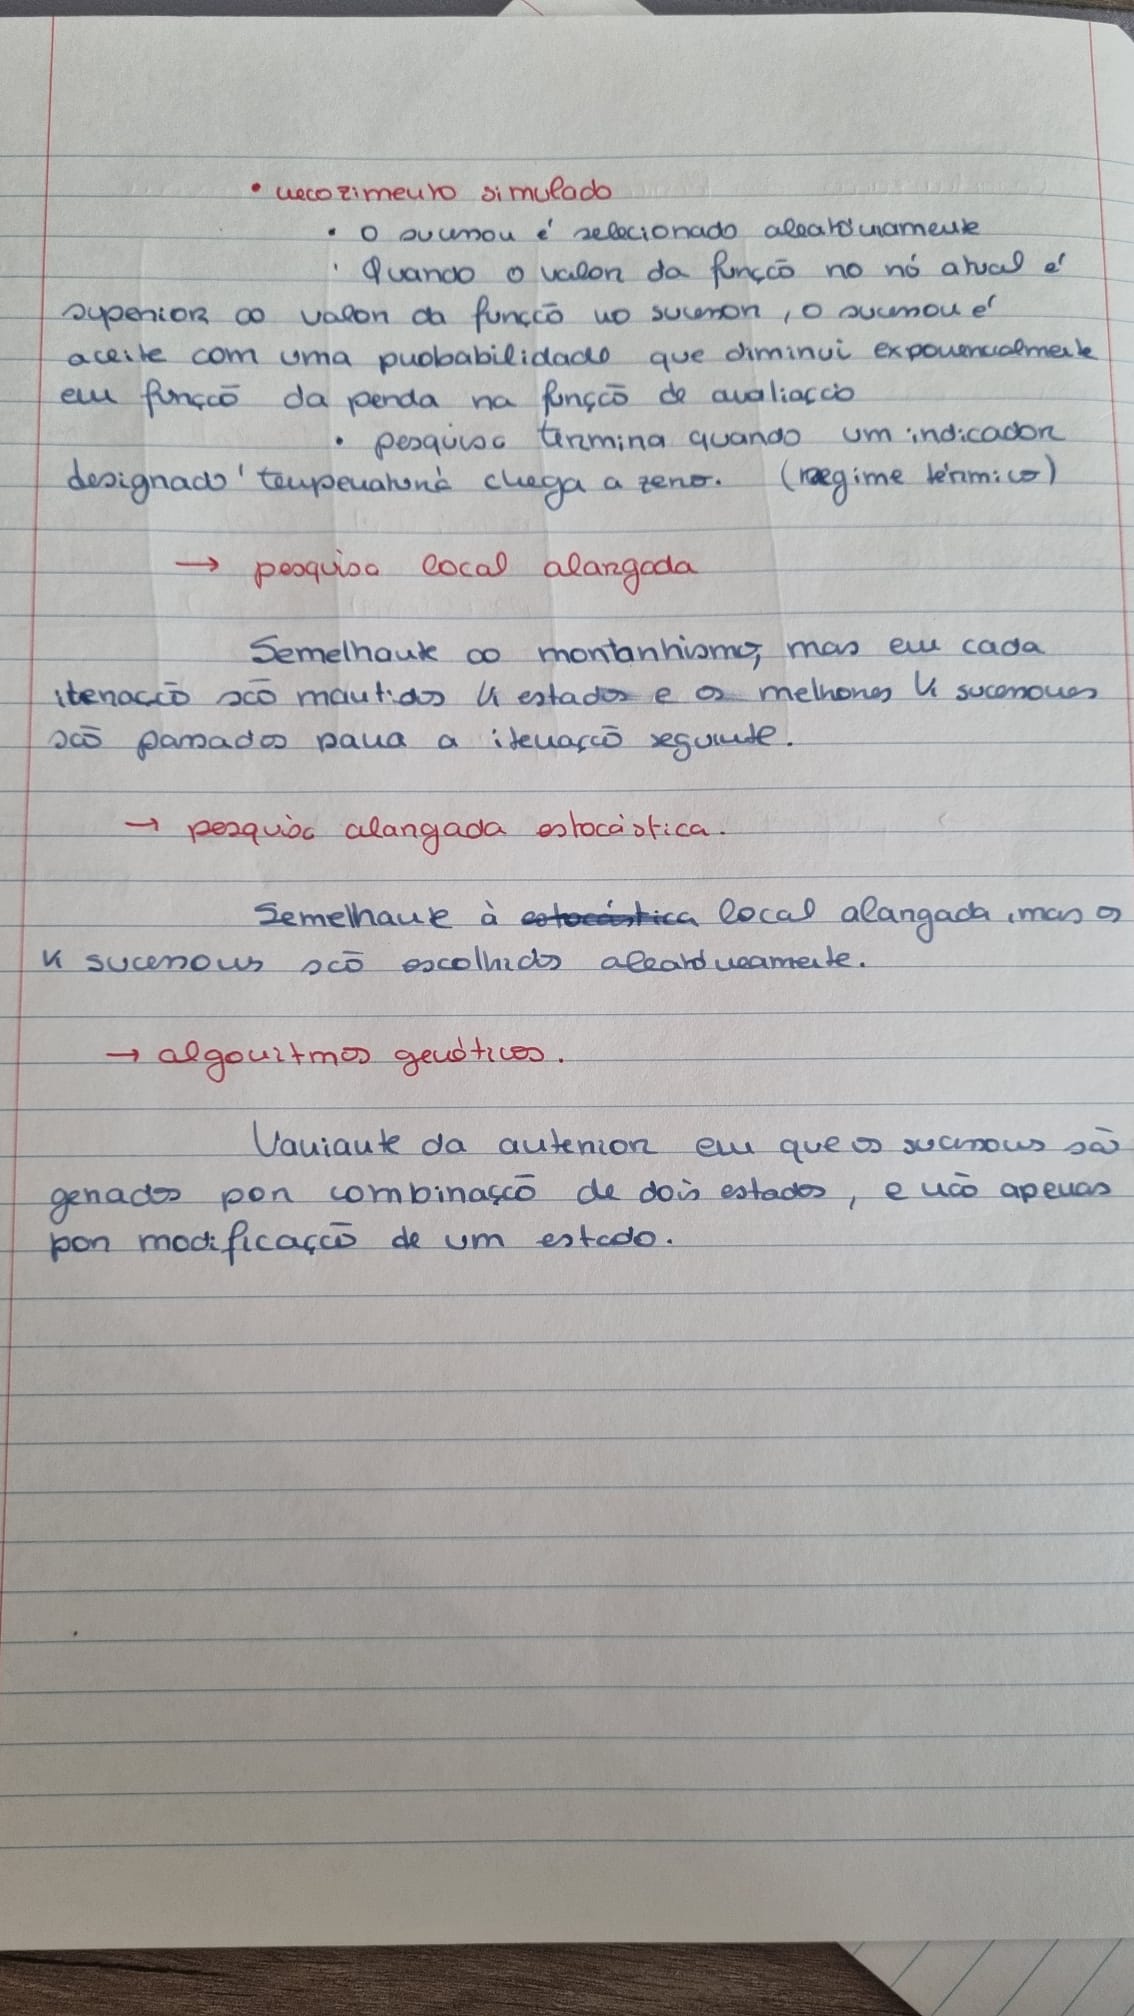 • recozimento simulado
• O sucessor é selecionado aleatoriamente
• Quando o valor da função no nó atual é
superior ao valor da função no sucessor, o sucessor é
aceite com uma probabilidade que diminui exponencialmente
em função da perda na função de avaliação
• pesquisa termina quando um indicador
designado 'temperatura' chega a zero. (regime térmico)
→ pesquisa local alargada
Semelhante ao montanhismo, mas em cada
iteração são mantidos K estados e os melhores K sucessores
são passados para a iteração seguinte.
→ pesquisa alargada estocástica.
Semelhante à estocástica local alargada, mas os
K sucessores são escolhidos aleatoriamente.
→ algoritmos genéticos.
Variante da anterior em que os sucessores são
gerados por combinação de dois estados, e não apenas
por modificação de um estado.